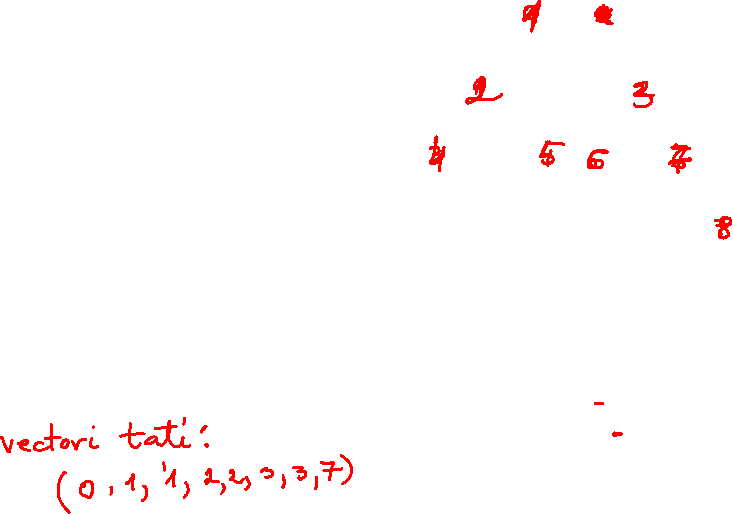 1
2 3
4 5 6 7
8
vectori tati:
(0, 1, 1, 2, 2, 3, 3, 7)